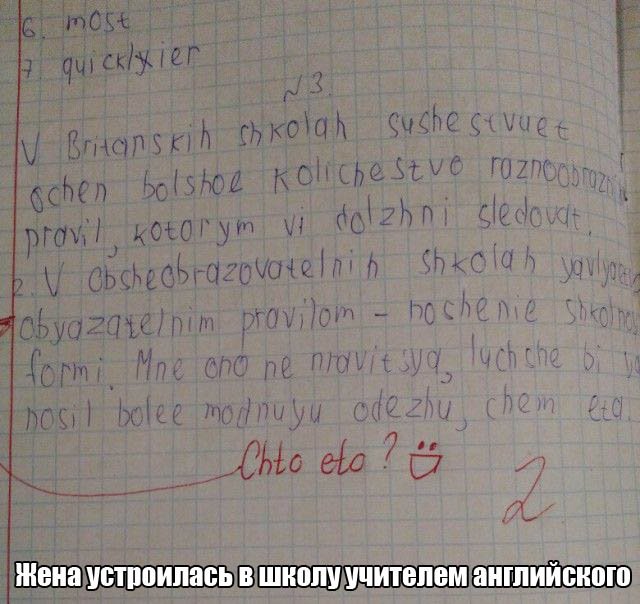 6. most
7 quicklyier
№3.
V Britanskih shkolah sushestvuet
ochen bolshoe kolichestvo raznoobraznih
pravil, kotorym vi dolzhni sledovat.
2. V obsheobrazovatelnih shkolah yavlyaetsya
obyazatelnim pravilom - noshenie shkolnoy
formi. Mne ono ne nravitsya, luchshe bi ya
nosil bolee modnuyu odezhu, chem eta.
Chto eto?
2
Жена устроилась в школу учителем английского